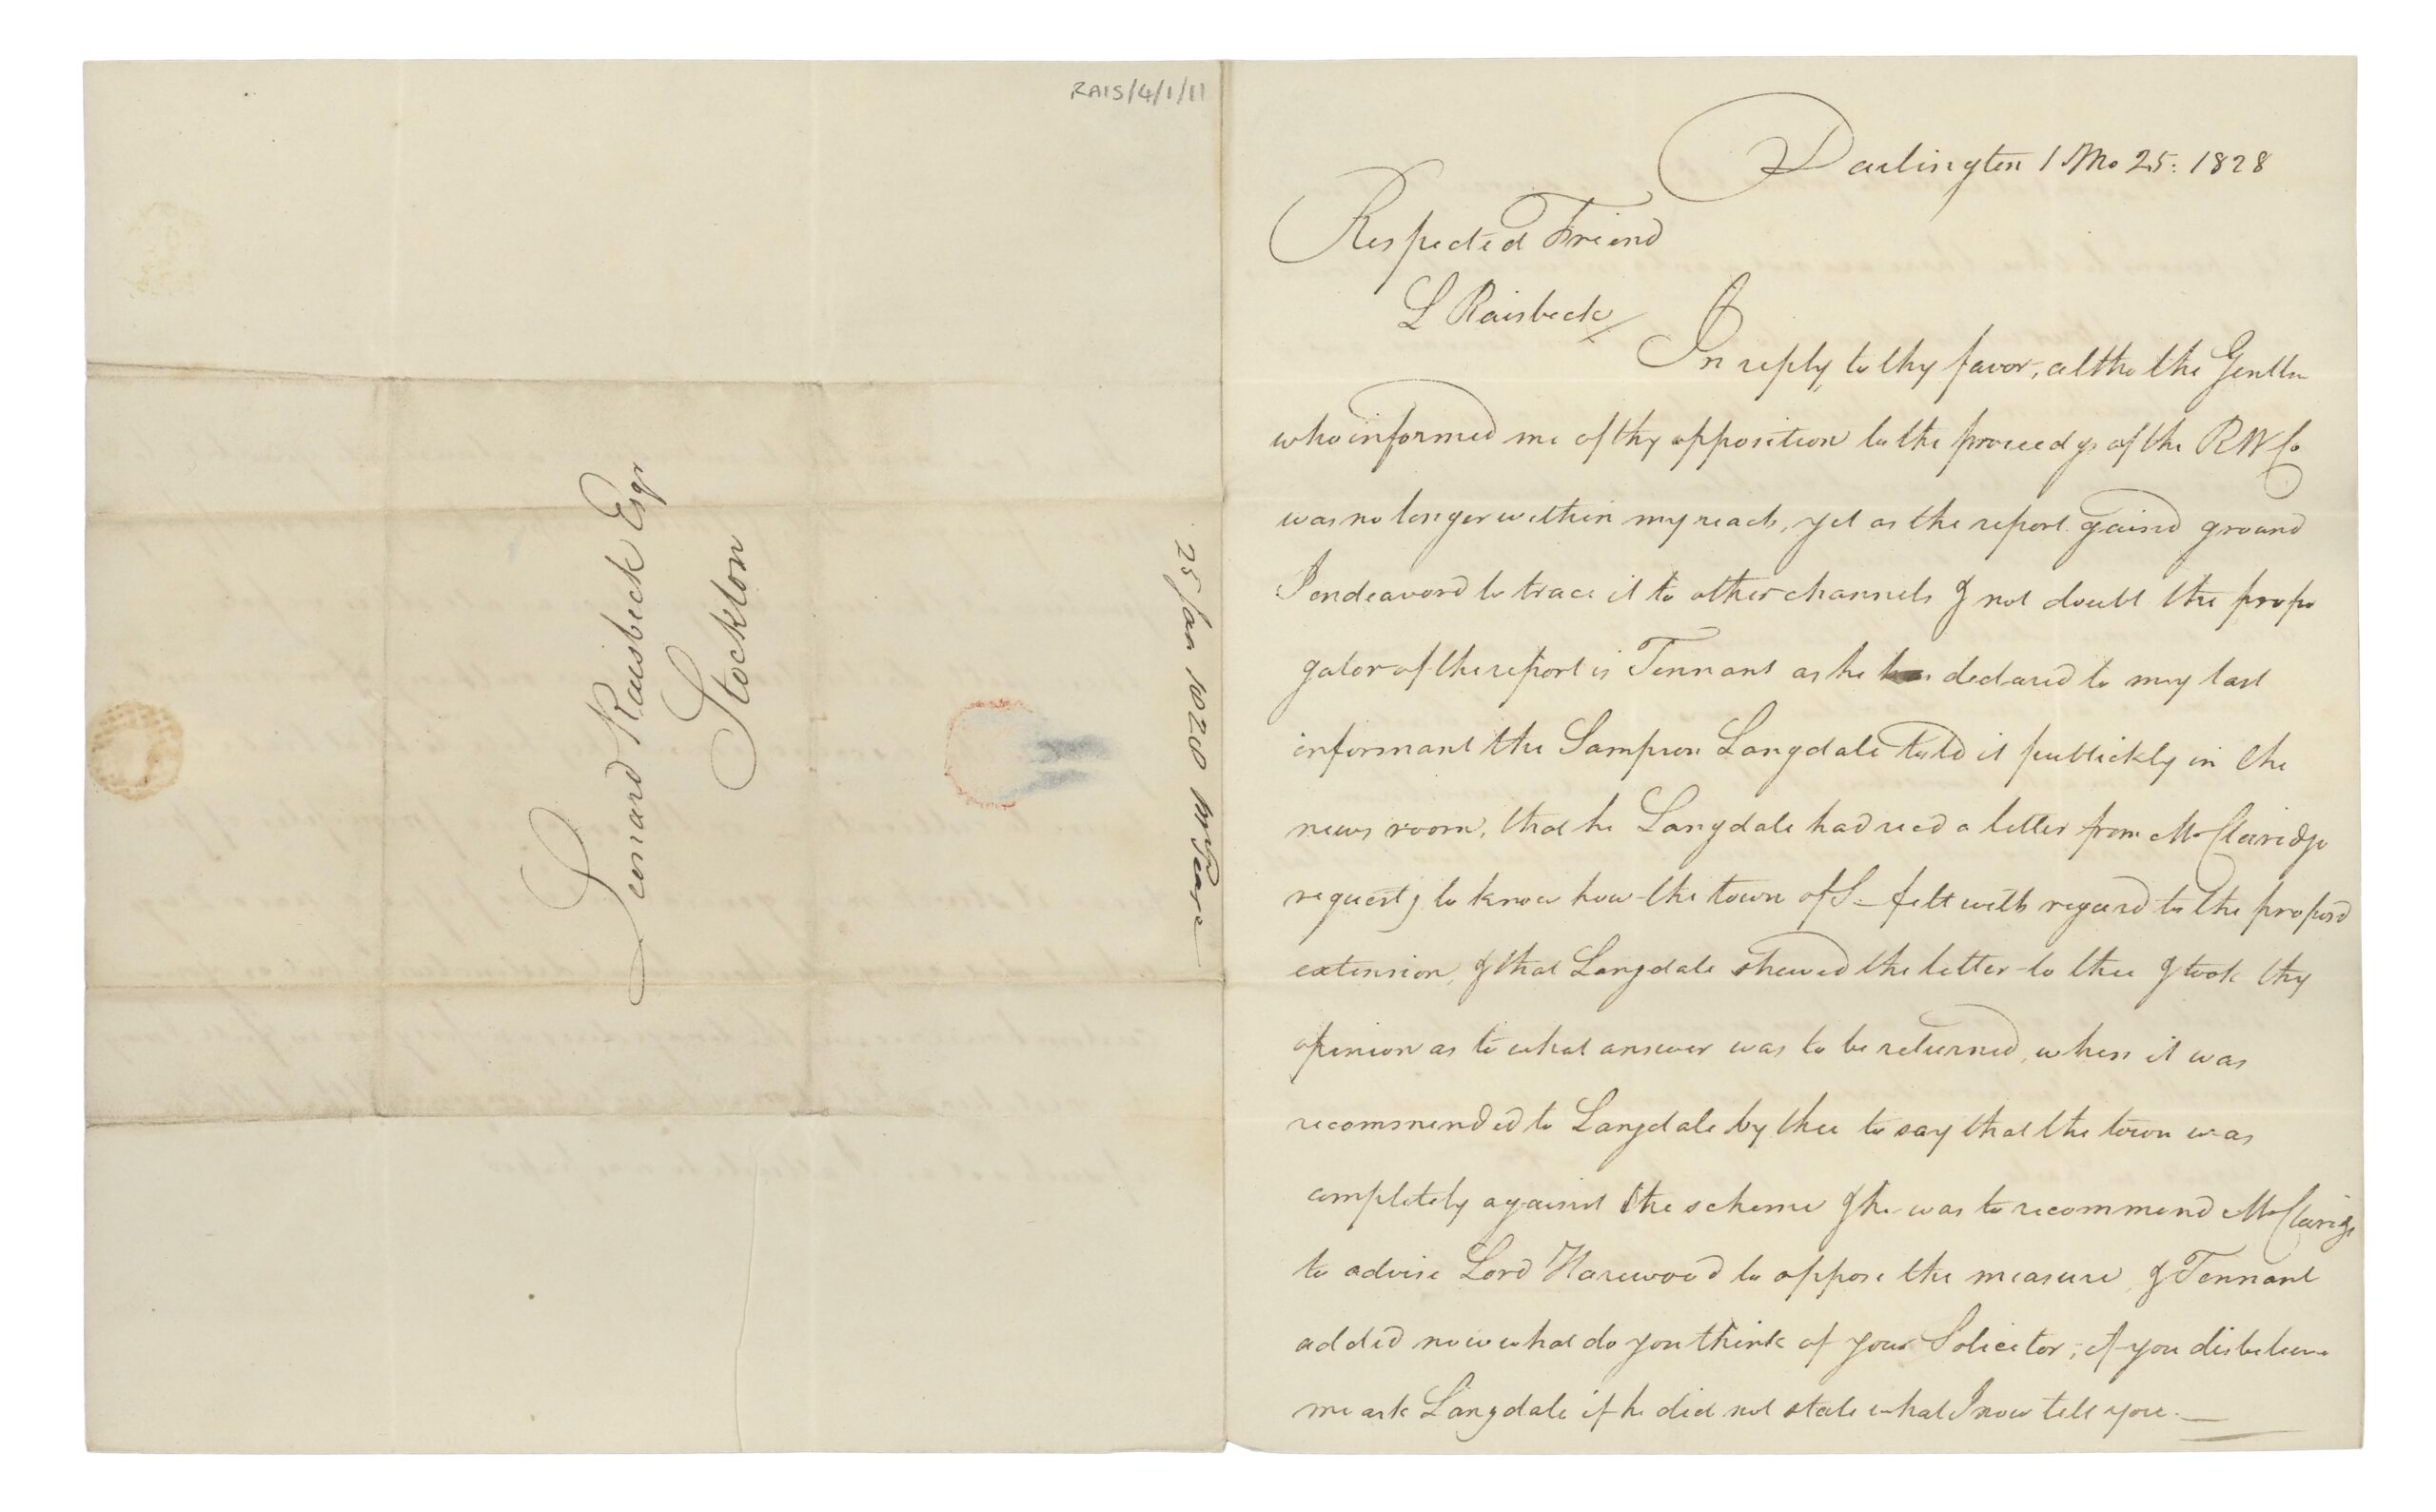 RAIS/4/1/11
Leonard Raisbeck Esqr
Stockton
25 Jan 1828 Mr Pease
Darlington 1 Mo 25: 1828
Respected Friend
L Raisbeck
In reply to thy favor, altho the Gentln
who informed me of thy opposition to the proceedgs of the RW Co
was no longer within my reach, yet as the report gaind ground
I endeavord to trace it to other channels & not doubt the propo
gator of the report is Tennant as he declared to my last
informant the Sampson Langdale told it publickly in the
news room, that he Langdale had recd a letter from Mr Claridge
requestg to know how the town of S– felt with regard to the proposd
extension, & that Langdale shewed the letter to thee & took thy
opinion as to what answer was to be returned, when it was
recommended to Langdale by thee to say that the town was
completely against the scheme & he was to recommend Mr Claridge
to advise Lord Harewood to oppose the measure, & Tennant
added now what do you think of your Solicitor; if you disbelieve
me ask Langdale if he did not state what I now tell you.—